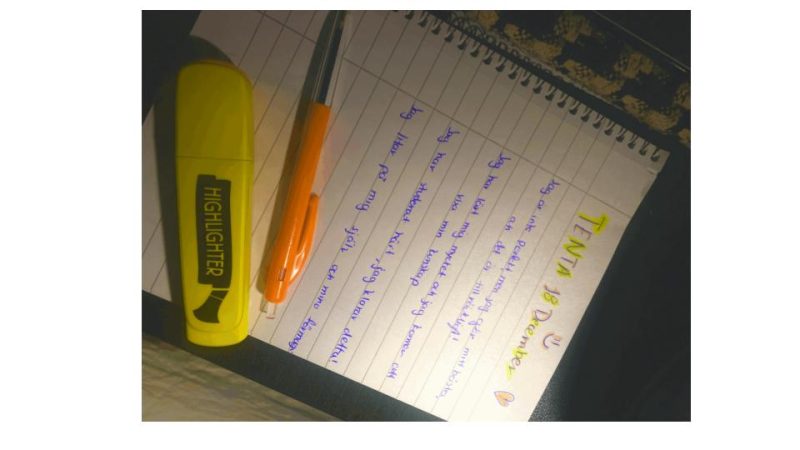 TENTA 18 December
Jag är inte Perfekt, men jag gör mitt bästa,
och det är tillräckligt!
Jag har lärt mig mycket och jag kommer att
visa min kunskap
Jag har studerat hårt, jag klarar detta!
Jag litar på mig själv och mina
HIGHLIGHTER